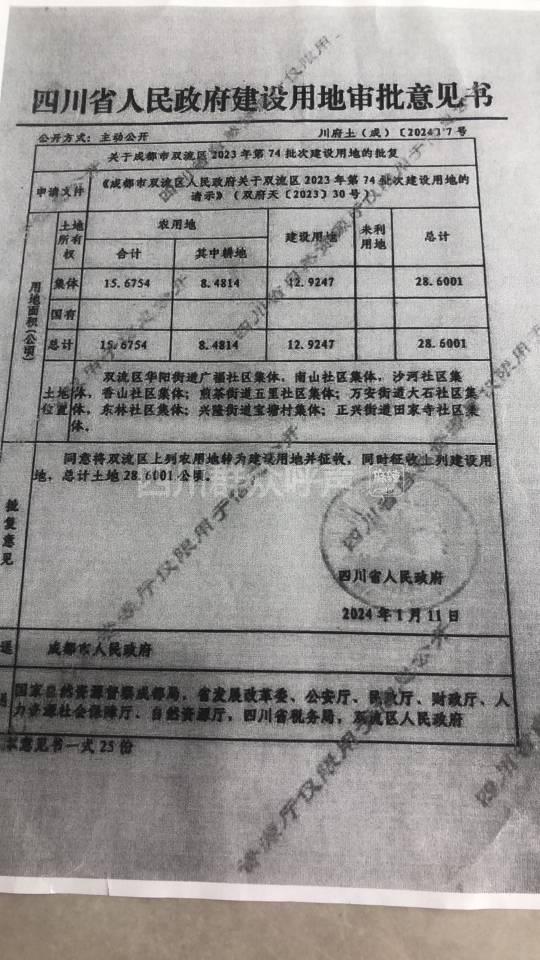 四川省人民政府建设用地审批意见书
公开方式：主动公开 川府土（成）〔2024〕7号
关于成都市双流区2023年第74批次建设用地的批复
申请文件 《成都市双流区人民政府关于双流区2023年第74批次建设用地的
请示》（双府天〔2023〕30号）
用地面积（公顷） 土地所有权 农用地 建设用地 未利用地 总计
合计 其中耕地
集体 15.6754 8.4814 12.9247 28.6001
国有
总计 15.6754 8.4814 12.9247 28.6001
土地位置 双流区华阳街道广福社区集体，南山社区集体，沙河社区集
体，香山社区集体；煎茶街道五里社区集体；万安街道大石社区集
体，东林社区集体；兴隆街道宝塘村集体；正兴街道田家寺社区集
体。
批复意见 同意将双流区上列农用地转为建设用地并征收，同时征收上列建设用
地，总计土地28.6001公顷。
四川群众呼声
四川省人民政府
2024年1月11日
送 成都市人民政府
国家自然资源督察成都局，省发展改革委、公安厅、民政厅、财政厅、人
力资源社会保障厅、自然资源厅，四川省税务局，双流区人民政府
本意见书一式25份